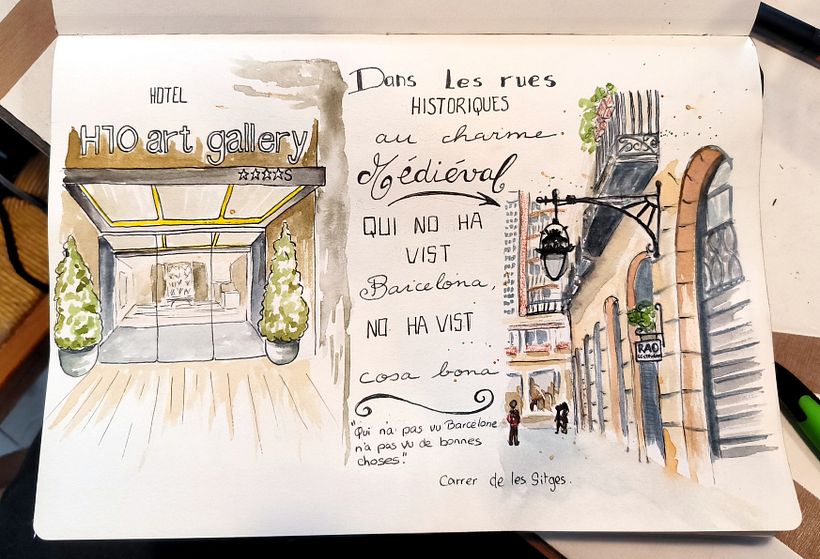 HOTEL
H10 art gallery
☆☆☆☆S
Dans les rues
HISTORIQUES
au charme
Médiéval
QUI NO HA
VIST
Barcelona,
NO HA VIST
cosa bona
"Qui n'a pas vu Barcelone
n'a pas vu de bonnes
choses."
RAO
Carrer de les Sitges.